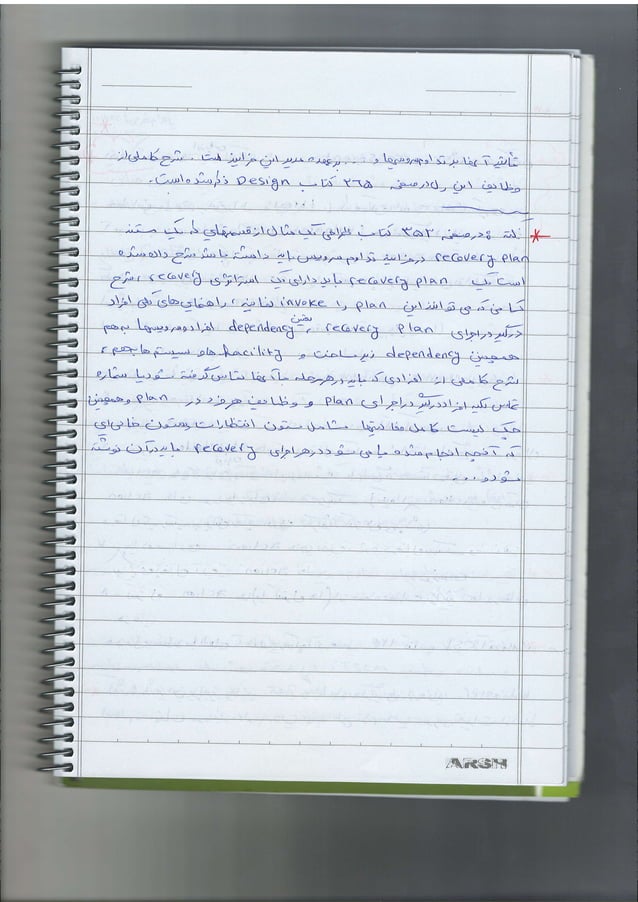 تأثیر آنها بر تداوم سرویسها و ... بر عهده مدیر این فرایند است. شرح کاملی از
وظایف این رل در صفحه ۳۶۵ کتاب Design ذکر شده است.
نکته: در صفحه ۳۵۲ کتاب طراحی یک مثال از قسمتهایی که یک مستند
recovery plan در فرایند تداوم سرویس باید داشته باشد شرح داده شده
است. یک recovery plan باید دارای یک استراتژی recovery، شرح
کسانی که می توانند این plan را invoke نمایند، راهنمایی های کلی افراد
درگیر در اجرای recovery plan، بخش dependency افراد و سرویسها به هم
همچنین dependency زیرساخت و facility ها و سیستم ها بهم،
شرح کاملی از افرادی که باید در هر مرحله با آنها تماس گرفته شود یا شماره
تماس کلیه افراد درگیر در اجرای plan و وظایف هر فرد در plan و همچنین
چک لیست کامل فعالیتها شامل ستون انتظارات و ستون خالی ای
که آنچه انجام شده یا می شود در هر اجرای recovery باید در آن نوشته
شود و ...
ARSH